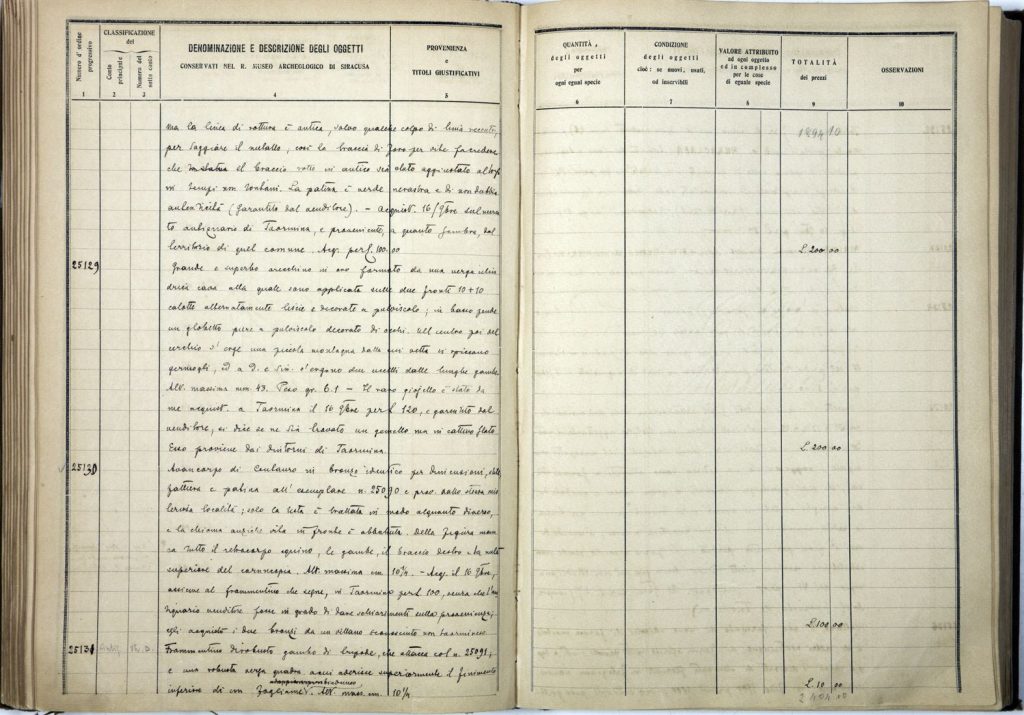 Numero d'ordine progressivo
CLASSIFICAZIONE del
Conto principale
Numero del sotto conto
DENOMINAZIONE E DESCRIZIONE DEGLI OGGETTI
CONSERVATI NEL R. MUSEO ARCHEOLOGICO DI SIRACUSA
PROVENIENZA
e
TITOLI GIUSTIFICATIVI
QUANTITÀ
degli oggetti
per
ogni eguai specie
CONDIZIONE
degli oggetti
cioè: se nuovi, usati,
od inservibili
VALORE ATTRIBUITO
ad ogni oggetto
ed in complesso
per le cose
di eguale specie
TOTALITÀ
dei prezzi
OSSERVAZIONI
1 2 3 4 5 6 7 8 9 10
ma la linea di rottura è antica, salvo qualche colpo di lima recente, 1894 10
per saggiare il metallo, così la braccia di
che il braccio rotto in antico sia stato aggiustato
in tempi non lontani. La patina è verde nerastra e di non dubbia
autenticità (garantito dal venditore). - Acquist. 16/9bre sul merca
to antiquario di Taormina, e proveniente, a quanto sembra, dal
territorio di quel comune. Acq. per £ 100.00 £. 200 00
25129 Grande e superbo orecchino in oro formato da una verga cilin
drica cava alla quale sono applicate sulle due fronti 10+10
calotte alternatamente liscie e decorate a pulviscolo; in basso pende
un globetto pure a pulviscolo decorato di occhi. Nel centro poi del
cerchio s'erge una piccola montagna dalla cui vetta si spiccano
germogli, ed a D. e Sin. s'ergono due uccelli dalle lunghe gambe
Alt. massima mm. 43. Peso gr. 6.1 - Il raro gioiello è stato da
me acquist. a Taormina il 16 9bre per £ 120, e garantito dal
venditore, si dice se ne sia trovato un gemello ma in cattivo stato
Esso proviene dai dintorni di Taormina. £. 200 00
25130 Avancorpo di Centauro in bronzo identico per dimensioni,
fattura e patina all'esemplare n. 25090 e prov. dalla stessa mis
teriosa località; solo la testa è trattata in modo alquanto diverso,
e la chioma anziché in fronte è abbattuta. Della figura man
ca tutto il retrocorpo equino, le gambe, il braccio destro e la metà
superiore del Alt. massima cm. 10¾. - Acq. il 16 9bre,
assieme al frammentino che segue, in Taormina per £ 100, senza che l'an
tiquario venditore fosse in grado di dare schiarimenti sulla provenienza;
egli acquistò i due bronzi da un villano sconosciuto non taorminese £. 100 00
25131 Frammentino di robusta gamba di che attacca col n. 25091;
e una robusta verga quadra aderisce superiormente il finimento
inferiore di un Alt. mass. cm. 10½ £. 10 00
2404 10